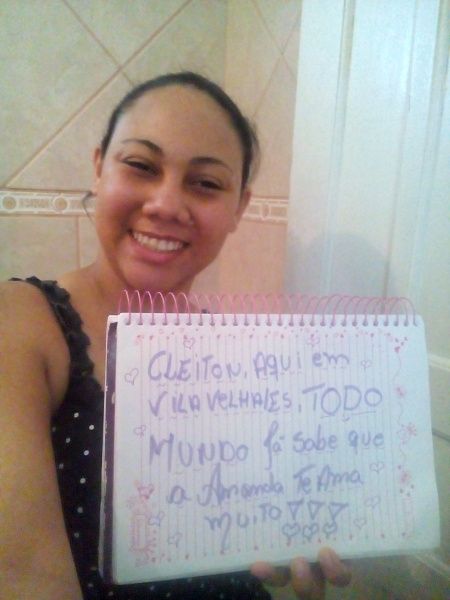 CLEITON, AQUI em
VILA VELHA/ES, TODO
MUNDO já sabe que
a Amanda Te Ama
muito